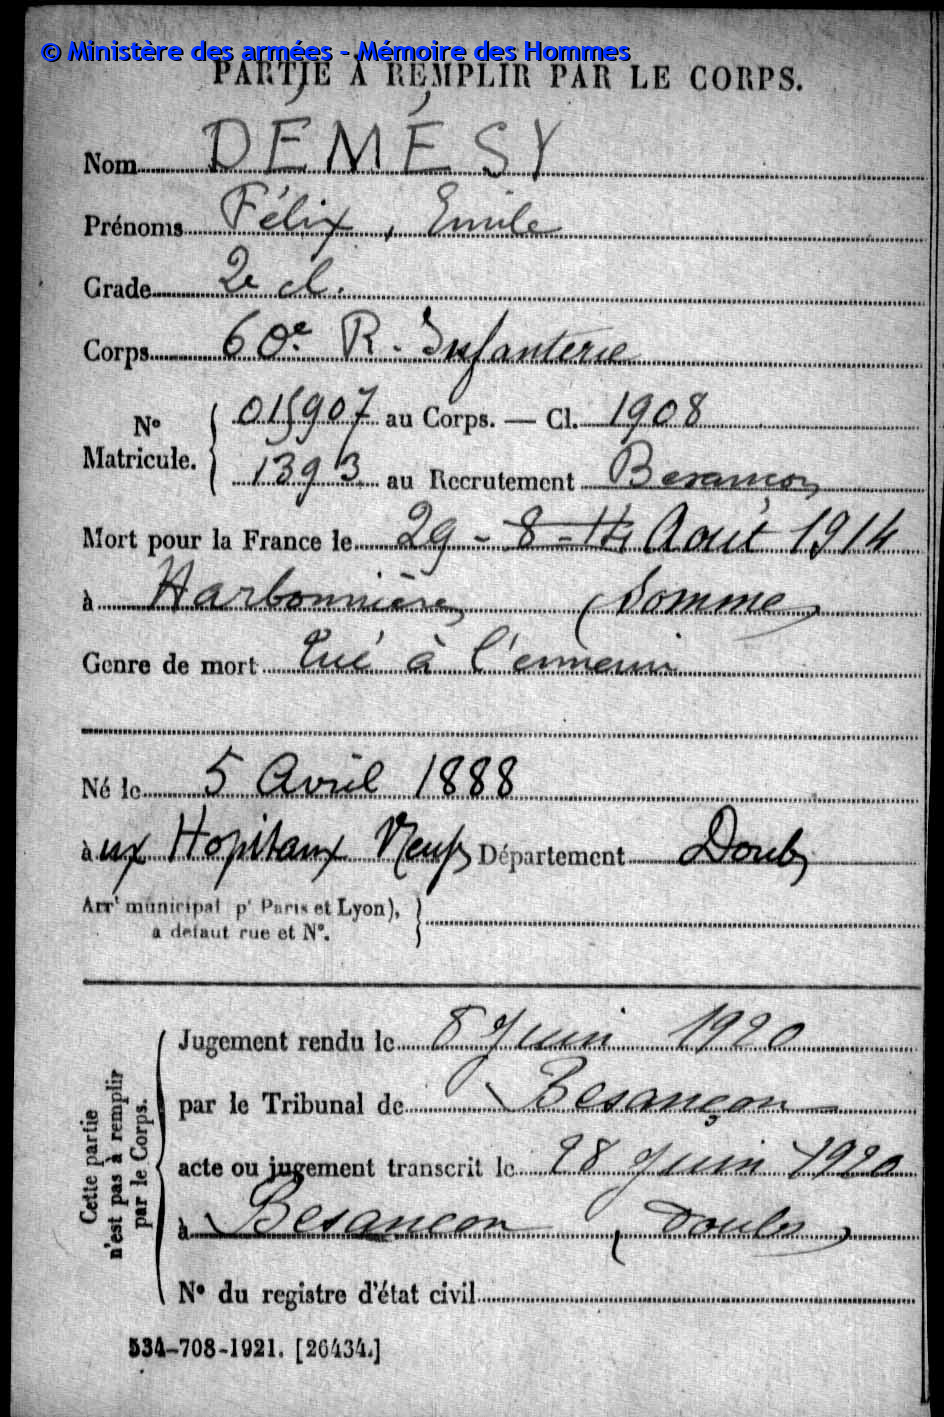 © Ministère des armées - Mémoire des Hommes
PARTIE À REMPLIR PAR LE CORPS.
Nom DÉMÉSY
Prénoms Félix, Emile
Grade 2e cl.
Corps 60e R. Infanterie
N° Matricule. { 015907 au Corps. — Cl. 1908
1393 au Recrutement Besançon
Mort pour la France le 29 - 8 - 14 Août 1914
à Harbonnières (Somme)
Genre de mort Tué à l'ennemi
Né le 5 Avril 1888
àux Hopitaux Neufs Département Doubs
Arrt municipal pr Paris et Lyon),
à défaut rue et N°.
Cette partie n'est pas à remplir par le Corps.
Jugement rendu le 8 Juin 1920
par le Tribunal de Besançon
acte ou jugement transcrit le 28 Juin 1920
à Besançon (Doubs)
N° du registre d'état civil
534-708-1921. [26434.]